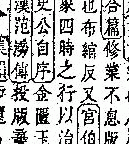 合篇修業不息版
也布綰反又宮伯
象四時之行以治
史公自序金匱玉
漢范滂傳投版棄